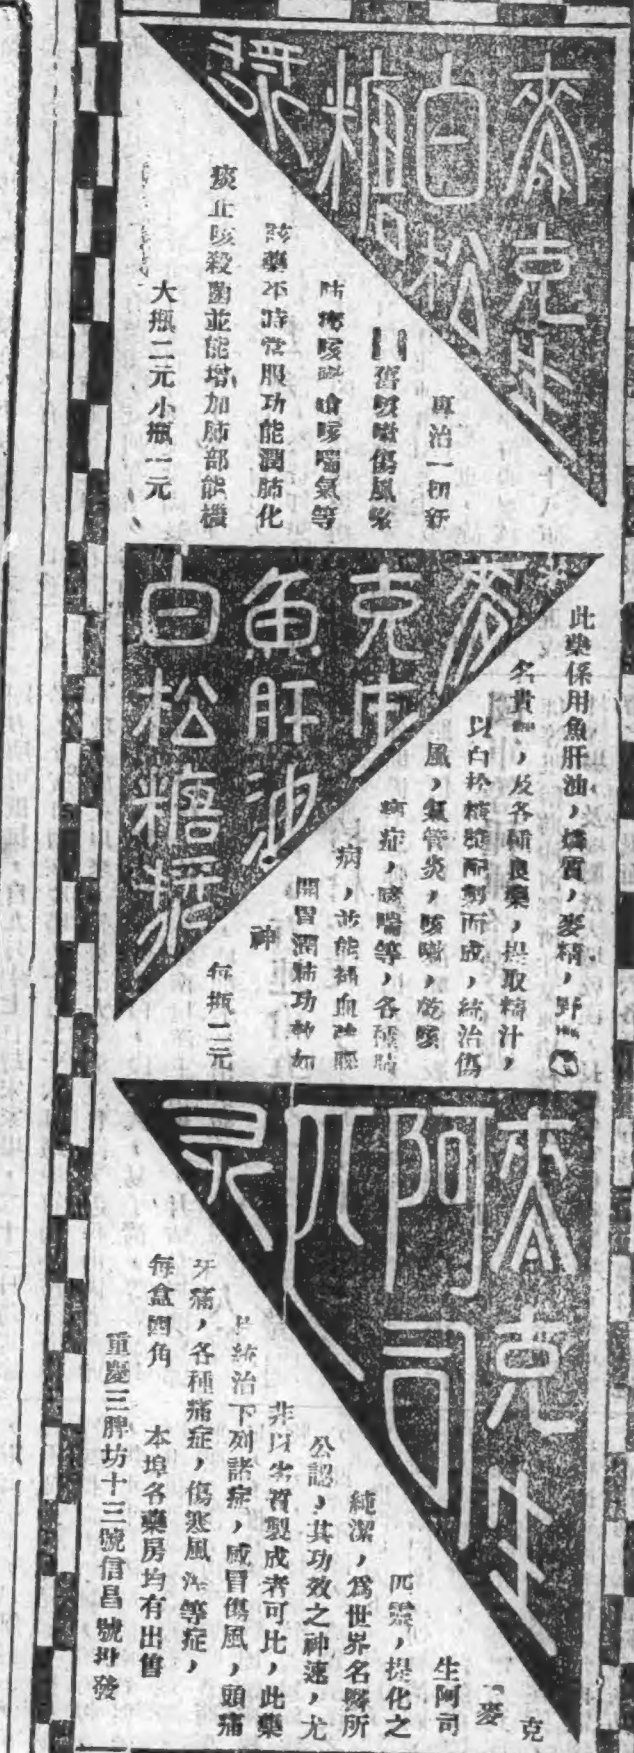 麥克生
白松
糖漿
專治一切新
舊咳嗽傷風咳
肺癆咳嗆咳喘氣等
該藥平時常服功能潤肺化
痰止咳殺菌並能增加肺部能機
大瓶二元小瓶一元
麥
克生
魚肝油
白松糖漿
此藥係用魚肝油，燐質，麥精，野
名貴，及各種良藥，提取精汁，
以白松糖漿配製而成，統治傷
風，氣管炎，咳嗽，乾咳
病症，咳喘等，各種肺
病，並能補血強腦
開胃潤肺功効如
神
每瓶二元
麥克生
阿司
匹
灵
「麥克
生阿司
匹靈，提化之
純潔，為世界名醫所
公認，其功效之神速，尤
非以劣質製成者可比，此藥
片統治下列諸症，感冒傷風，頭痛
牙痛，各種痛症，傷寒風等症，
每盒四角　本埠各藥房均有出售
重慶三牌坊十三號信昌號批發